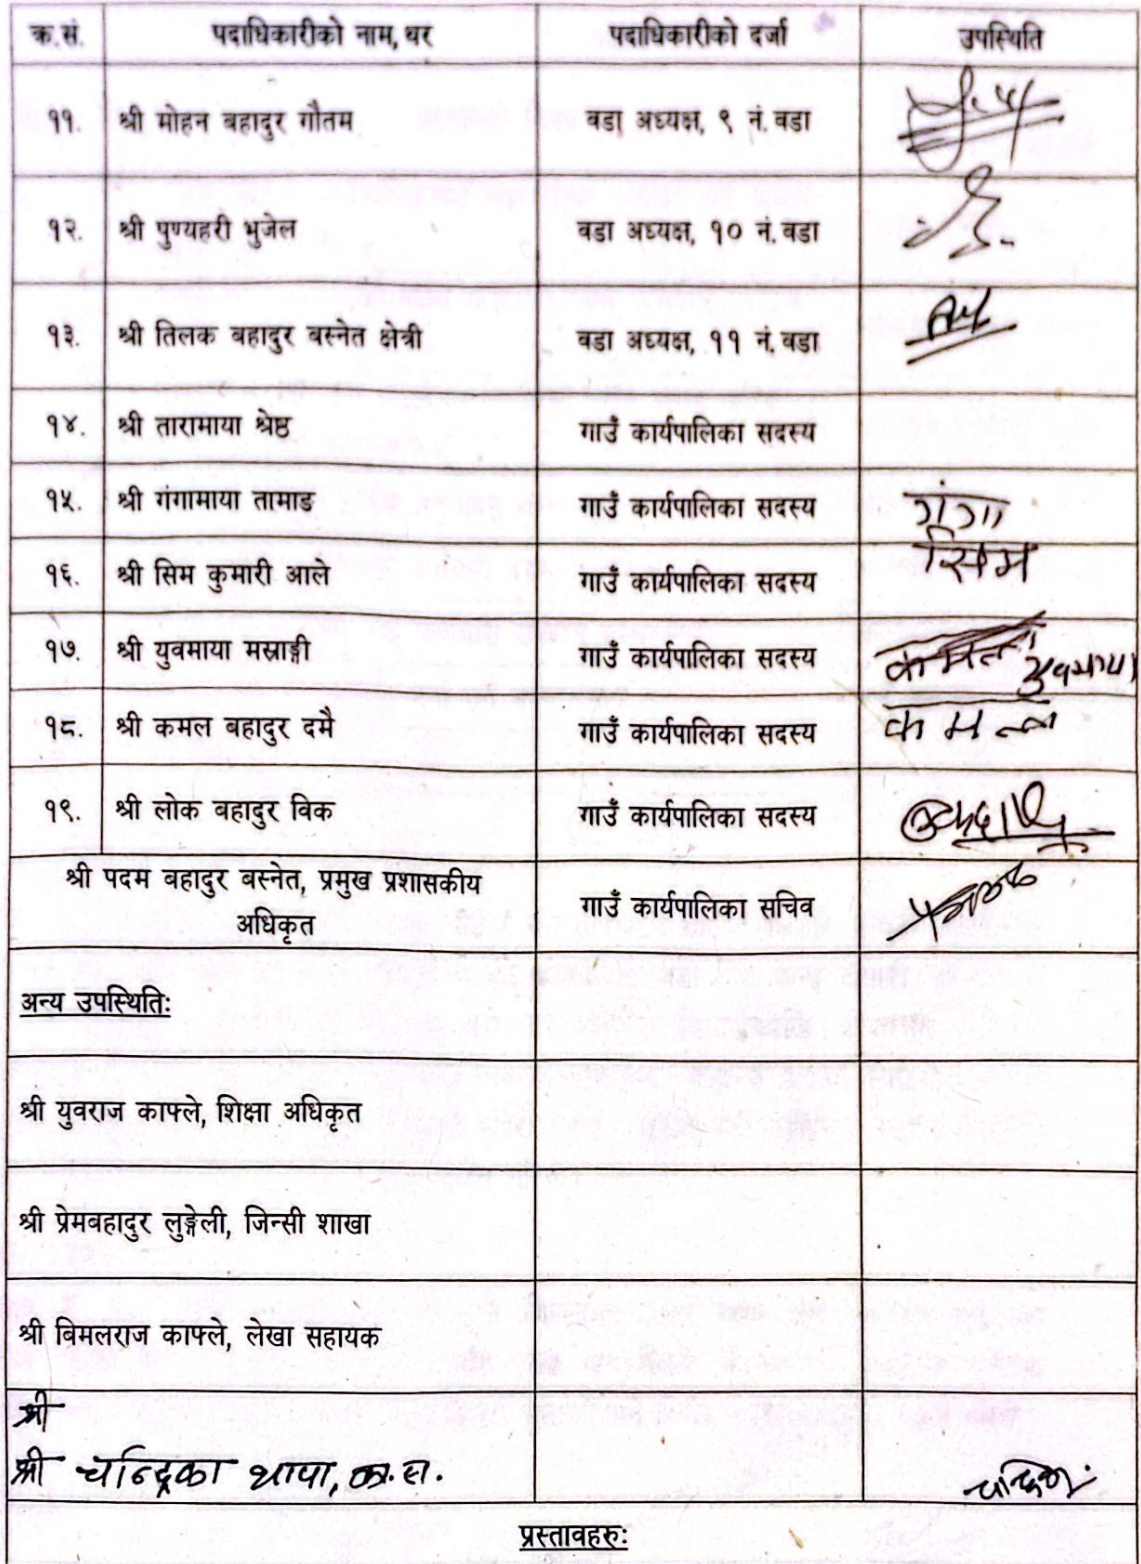 क्र.सं. पदाधिकारीको नाम, थर पदाधिकारीको दर्जा उपस्थिति
११. श्री मोहन बहादुर गौतम वडा अध्यक्ष, ९ नं. वडा
१२. श्री पुण्यहरी भुजेल वडा अध्यक्ष, १० नं. वडा
१३. श्री तिलक बहादुर बस्नेत क्षेत्री वडा अध्यक्ष, ११ नं. वडा
१४. श्री तारामाया श्रेष्ठ गाउँ कार्यपालिका सदस्य
१५. श्री गंगामाया तामाङ गाउँ कार्यपालिका सदस्य गंगा
१६. श्री सिम कुमारी आले गाउँ कार्यपालिका सदस्य सिम
१७. श्री युवमाया मस्राङ्गी गाउँ कार्यपालिका सदस्य कमल युवमाया
१८. श्री कमल बहादुर दमै गाउँ कार्यपालिका सदस्य कमल
१९. श्री लोक बहादुर विक गाउँ कार्यपालिका सदस्य
श्री पदम बहादुर बस्नेत, प्रमुख प्रशासकीय
अधिकृत गाउँ कार्यपालिका सचिव
अन्य उपस्थितिः
श्री युवराज काफ्ले, शिक्षा अधिकृत
श्री प्रेमबहादुर लुङ्गेली, जिन्सी शाखा
श्री बिमलराज काफ्ले, लेखा सहायक
श्री
श्री चन्द्रिका थापा, का.स. चन्द्रिका
प्रस्तावहरुः